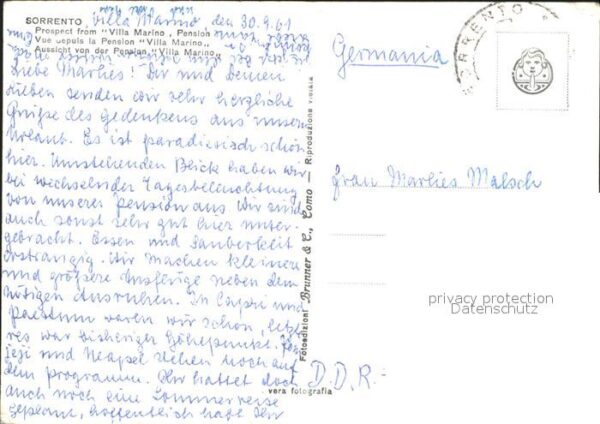 Villa Marino, den 30.9.61
SORRENTO
Prospect from "Villa Marino, Pension
Vue depuis la Pension "Villa Marino„
Aussicht von der Pension "Villa Marino„
Liebe Marlies! Dir und Deinen
Lieben senden wir sehr herzliche
Grüße des Gedenkens aus unserm
Urlaub. Es ist paradiesisch schön
hier. Umstehenden Blick haben wir
bei wechselnder Tagesbeleuchtung
von unserer Pension aus. Wir sind
auch sonst sehr gut hier unter-
gebracht. Essen und Sauberkeit
erstrangig. Wir machen kleinere
und größere Ausflüge neben dem
nötigen Ausruhen. In Capri und
Paestum waren wir schon, letzte-
res war bisheriger Höhepunkt. Pom-
peji und Neapel stehen noch auf
dem Programm. Ihr hattet doch
auch noch eine Sommerreise
geplant, hoffentlich habt Ihr
Fotoedizioni Brunner & C., Como — Riproduzione vietata
vera fotografia
SORRENTO
Germania
Frau Marlies Malsch
D.D.R.-
privacy protection
Datenschutz